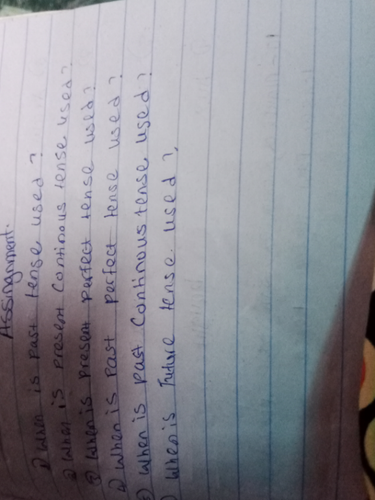 Assignment.
1) When is past tense used?
2) When is present Continous tense used?
3) When is present perfect tense used?
4) When is past perfect tense used?
5) When is past Continous tense used?
) When is Future tense used?